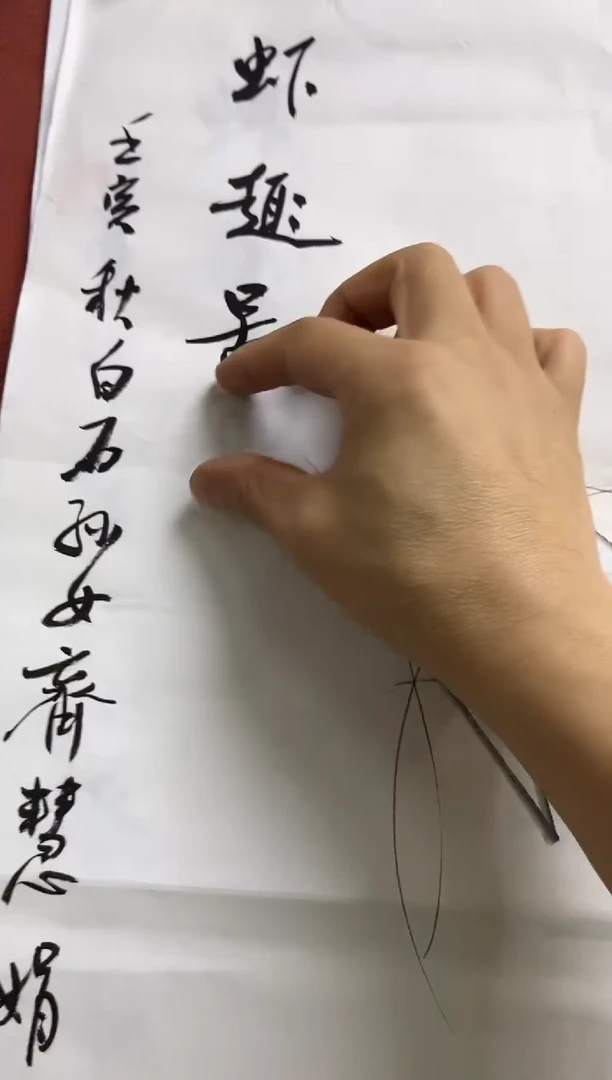 虾趣
壬寅秋白石孙女齊慧娟